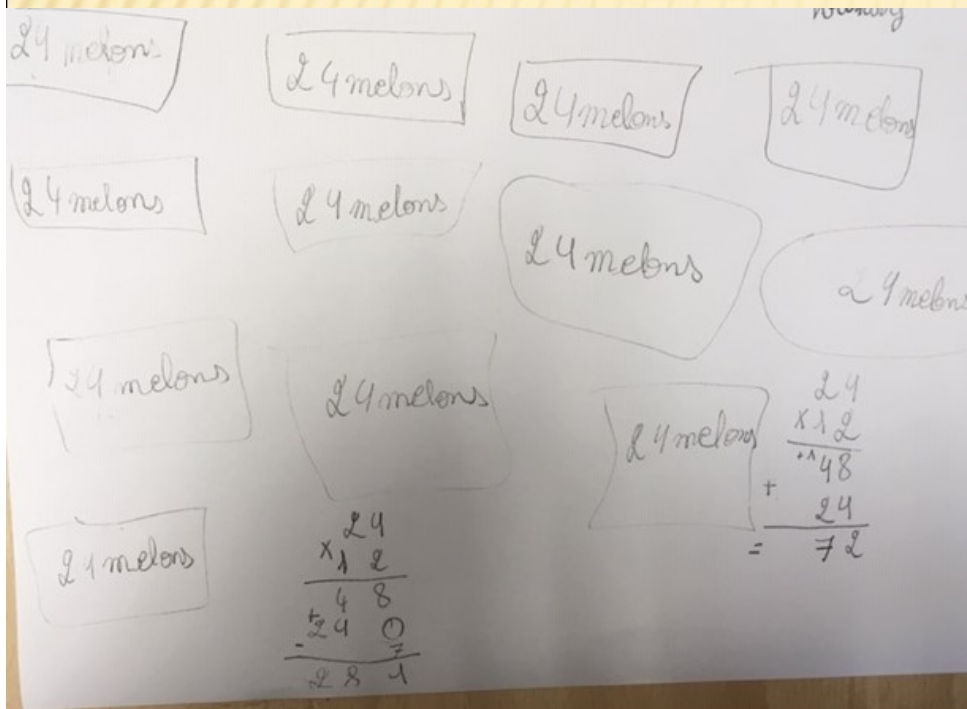 24 melons
24 melons
24 melons
24 melons
24 melons
24 melons
24 melons
24 melons
24 melons
24 melons
24 melons
24
x12
+1 48
+ 24
= 72
24 melons
24
x12
48
+24 0
- 7
281